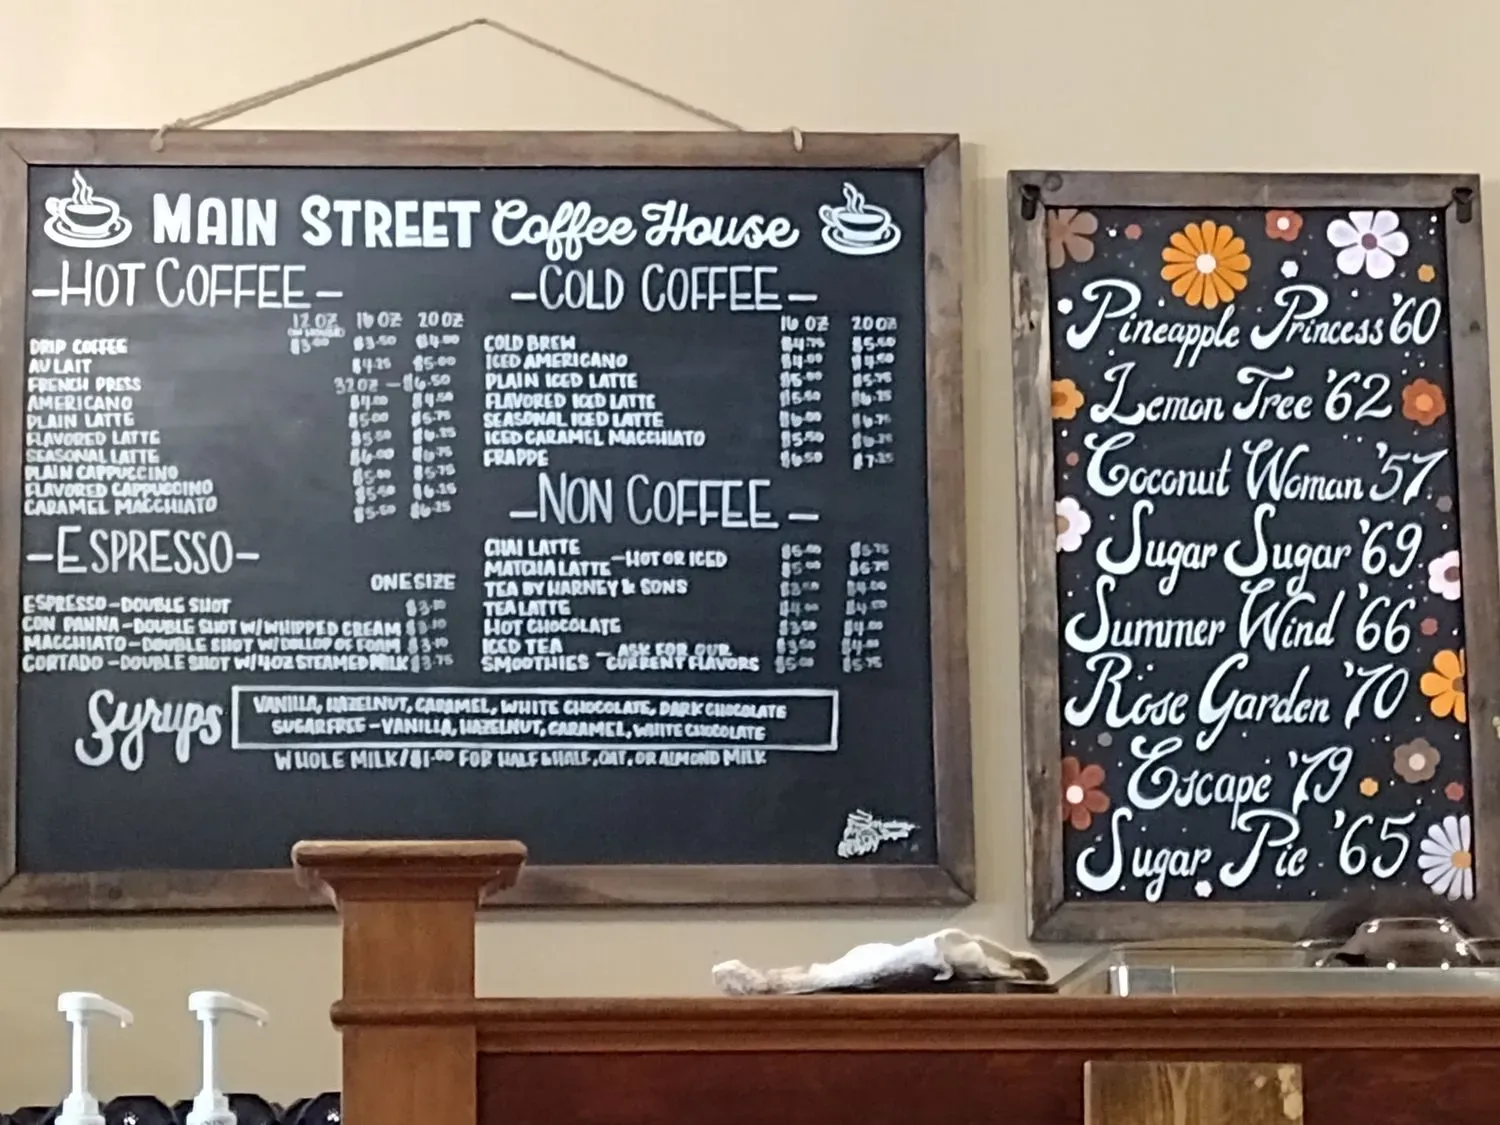 MAIN STREET Coffee House
-HOT COFFEE-
12 OZ 16 OZ 20 OZ
DRIP COFFEE $3.00 $3.50 $4.00
AU LAIT $4.25 $5.00
FRENCH PRESS 32 OZ - $6.50
AMERICANO $4.00 $4.50
PLAIN LATTE $5.00 $5.75
FLAVORED LATTE $5.50 $6.25
SEASONAL LATTE $6.00 $6.75
PLAIN CAPPUCCINO $5.00 $5.75
FLAVORED CAPPUCCINO $5.50 $6.25
CARAMEL MACCHIATO $5.50 $6.25
-ESPRESSO-
ONE SIZE
ESPRESSO-DOUBLE SHOT
CON PANNA-DOUBLE SHOT W/WHIPPED CREAM
MACCHIATO-DOUBLE SHOT W/DOLLOP OF FOAM
CORTADO -DOUBLE SHOT W/4OZ STEAMED MILK $3.75
-COLD COFFEE-
16 OZ 20 OZ
COLD BREW $4.75 $5.50
ICED AMERICANO $4.00 $4.50
PLAIN ICED LATTE $5.00 $5.75
FLAVORED ICED LATTE $5.50 $6.25
SEASONAL ICED LATTE $6.00 $6.75
ICED CARAMEL MACCHIATO $5.50 $6.25
FRAPPE $6.50 $7.25
-NON COFFEE-
CHAI LATTE $5.00 $5.75
MATCHA LATTE -HOT OR ICED $5.00 $5.75
TEA BY HARNEY & SONS $3.50 $4.00
TEA LATTE $4.00 $4.50
HOT CHOCOLATE $3.50 $4.00
ICED TEA $3.50 $4.00
SMOOTHIES - ASK FOR OUR CURRENT FLAVORS $5.00 $5.75
Syrups
VANILLA, HAZELNUT, CARAMEL, WHITE CHOCOLATE, DARK CHOCOLATE
SUGARFREE-VANILLA, HAZELNUT, CARAMEL, WHITE CHOCOLATE
WHOLE MILK/$1.00 FOR HALF & HALF, OAT, OR ALMOND MILK
Pineapple Princess '60
Lemon Tree '62
Coconut Woman '57
Sugar Sugar '69
Summer Wind '66
Rose Garden '70
Escape '79
Sugar Pie '65